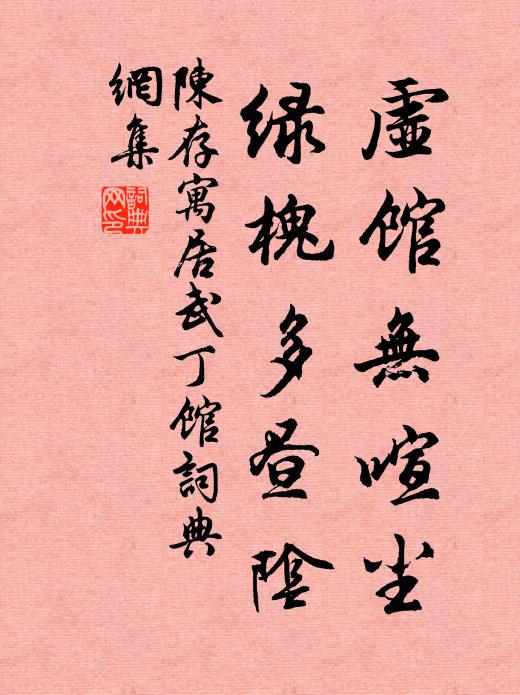 虛館無喧尘
绿槐多昼陰
陳存寓居武丁館詞典
網集
詞典
网印